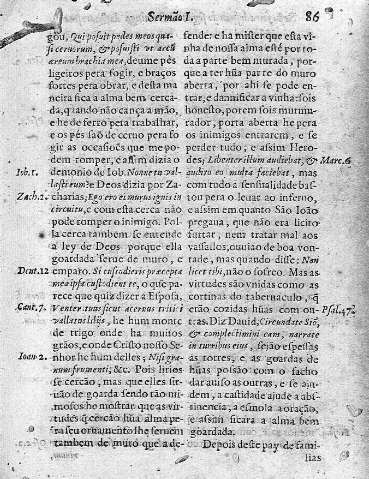 Sermão I.
86
gou, Qui posuit pedes meos qua-
si cervorum, & posuisti ut arcũ
æreum brachia mea, deume pés
ligeiros pera fogir, e braços
fortes pera obrar, e desta ma
neira fica a alma bem cerca-
da, quando não cança a mão,
e he de ferro pera trabalhar,
e os pés são de cervo pera fo
gir as occasiões que me po-
dem romper, e assim dizia o
demonio de Iob. Nonne tu val-
lasti eum? e Deos dizia por Za-
charias, Ego ero ei murus ignis in
circuitu, e com esta cerca não
póde romper o inimigo. Pol-
la cerca tambem se entende
a ley de Deos porque ella
goardada serue de muro, e
emparo. Si custodieris præcepta
mea ipsa custodient te, o que pa-
rece que quiz dizer a Esposa,
Venter tuus sicut acervus tritici
vallatus lilijs, he hum monte
de trigo onde ha muitos
grãos, e onde Christo nosso Se-
nhor he hum delles; Nisi gra-
num frumenti, &c. Pois lirios
se cercão, mas que elles sir-
uão de goarda sendo tão mi-
mosos he mostrar que as vir-
tudes q̃ cercão hũa alma pe-
ra seu ornamento lhe seruem
tambem de muro que a de-
Iob. 1.
Zach. 2.
Deut. 12
Cant. 7.
Ioan. 2.
fender e ha mister que esta vi-
nha de nossa alma esté por to-
da a parte bem murada, por-
que a ter hũa parte do muro
aberta, por ahi se pode en-
trar, e damnificar a vinha: sois
honesto, porem sois murmu-
rador, porta aberta he pera
os inimigos entrarem, e se
perder tudo, e assim Hero-
des; Libenter illum audiebat, &
audito eo multa faciebat, mas
com todo a sensualidade bas-
tou pera o levar ao inferno,
e assim em quanto São Ioão
pregaua, que não era licito
furtar, nem tratar mal aos
vassallos, ouuiao de boa von-
tade, mas quando disse: Non
licet tibi, não o sofreo. Mas as
virtudes são vnidas como as
cortinas do tabernaculo, q̃
erão cozidas hũas com ou-
tras. Diz Dauid, Circundate Siõ,
& complectimini eam, narrate
in turribus eius, sejão espessas
as torres, e as goardas de
hũas possão com o facho
dar auiso as outras, e se aju-
dem, a castidade ajude a abs-
tinencia, a esmola a oração,
e assim ficara a alma bem
goardada.
Depois deste pay de fami-
lias
Marc. 6
Psal. 47.